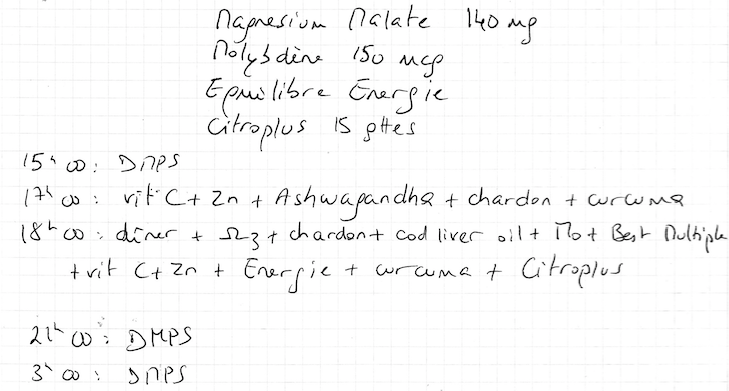 Magnesium Malate 140 mg
Molybdène 150 mcg
Equilibre Energie
Citroplus 15 gttes
15h00: DMPS
17h00: vit C + Zn + Ashwagandha + chardon + curcuma
18h00: dîner + Ω3 + chardon + cod liver oil + Mo + Best Multiple
+ vit C + Zn + Energie + curcuma + Citroplus
21h00: DMPS
3h00: DMPS